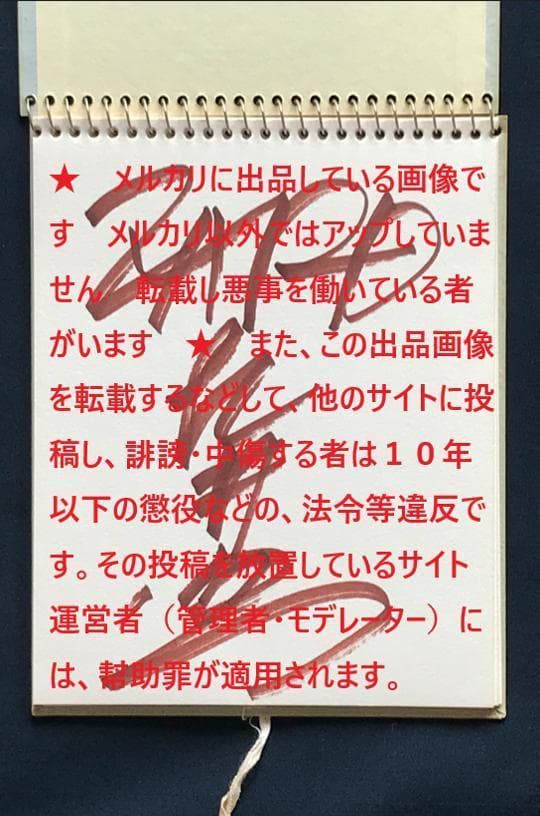 ★　メルカリに出品している画像で
す　メルカリ以外ではアップしていま
せん　転載し悪事を働いている者
がいます　★　また、この出品画像
を転載するなどして、他のサイトに投
稿し、誹謗・中傷する者は１０年
以下の懲役などの、法令等違反で
す。その投稿を放置しているサイト
運営者（管理者・モデレーター）に
は、幇助罪が適用されます。